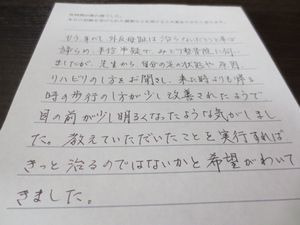 もう手おくれ、外反母趾は治らないという事は
諦らめ、半信半疑で みどり整骨院に伺い
ましたが、先生から、自分の足の状態や原因、
リハビリの仕方をお聞きし、来た時よりも帰る
時の歩行の仕方が少し改善されたようで
目の前が少し明るくなったような気がしまし
た。教えていただいたことを実行すれば
きっと治るのではないかと希望がわいて
きました。